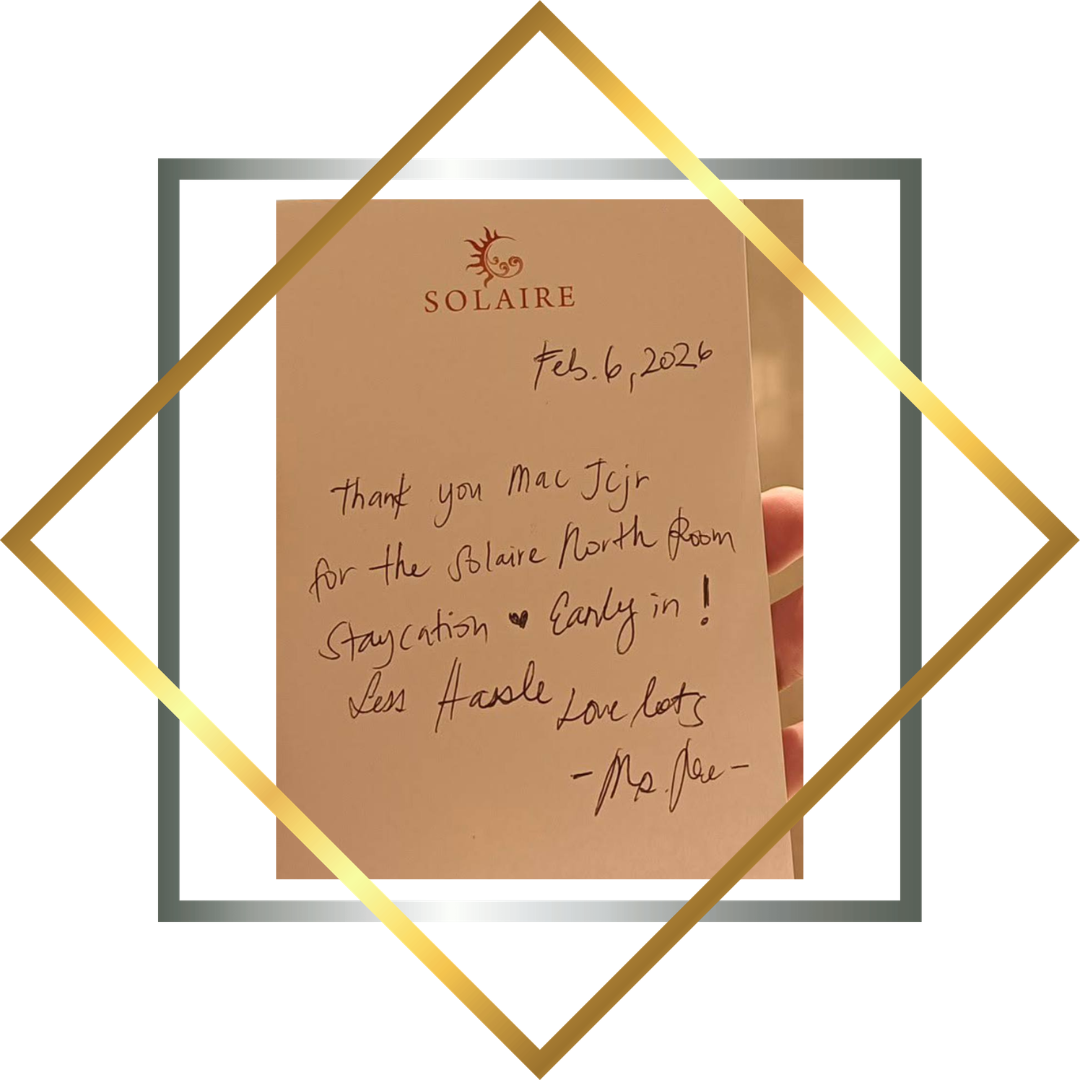 SOLAIRE
Feb. 6, 2026
Thank you Mac Jcjr
for the Solaire North Room
Staycation ♥ Early in !
Less Hassle Love lots
- Ms.